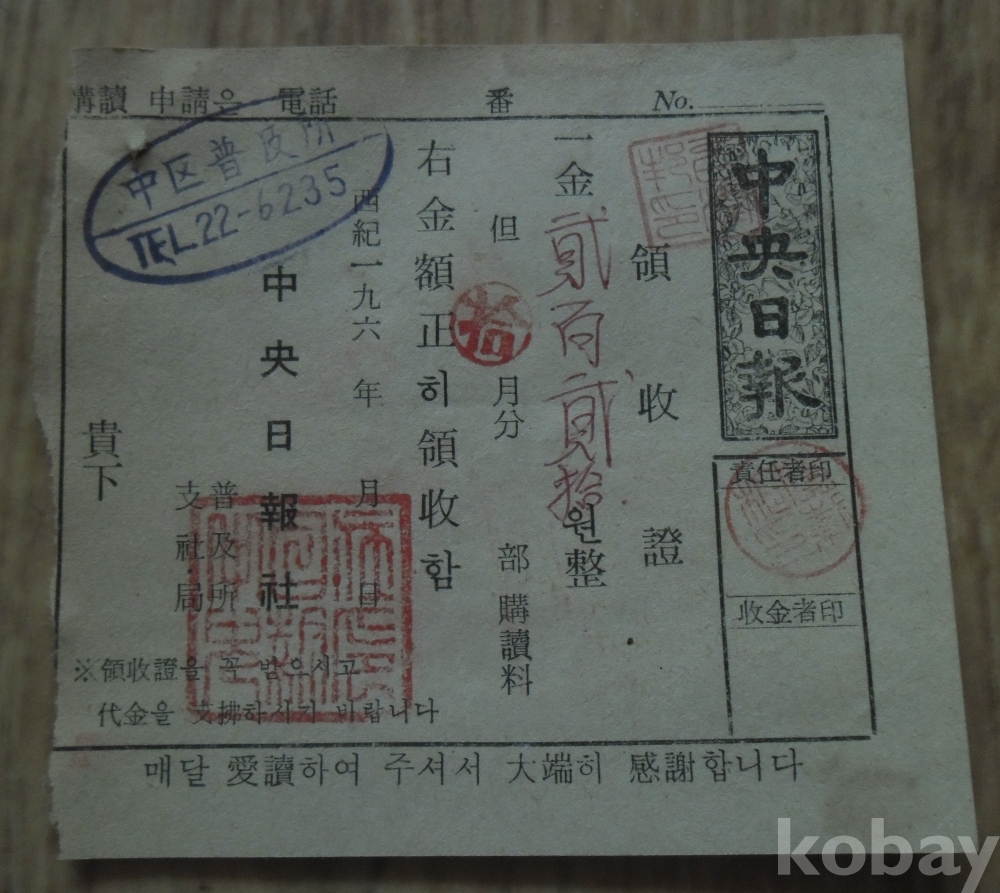 購讀 申請은 電話 番 No.
中央日報
責任者印
收金者印
領收證
一金 貳百貳拾 원整
但 拾 月分 部 購讀料
右金額正히領收함
西紀一九六 年 月 日
中央日報社
普及所
支社局
貴下
中区普及所
TEL 22-6235
※領收證을 꼭 받으시고
代金을 支拂하시기 바랍니다
매달 愛讀하여 주셔서 大端히 感謝합니다
kobay